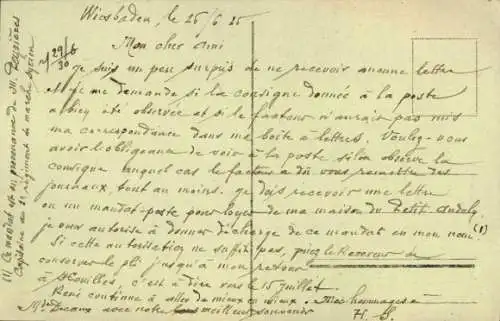 Wiesbaden, le 25/6 25
Mon cher ami
Je suis un peu surpris de ne recevoir aucune lettre
et je me demande si la consigne donnée à la poste
a bien été observée et si le facteur n'aurait pas mis
ma correspondance dans ma boîte à lettres. Voulez-vous
avoir l'obligeance de voir à la poste si l'on observe la
consigne auquel cas le facteur a dû vous remettre des
journaux, tout au moins. Je dois recevoir une lettre
ou un mandat-poste pour loyer de ma maison du Petit Andely
je vous autorise à donner décharge de ce mandat en mon nom (1)
Si cette autorisation ne suffit pas, priez le Receveur de
conserver le pli jusqu'à mon retour
à Houilles, c'est à dire vers le 15 juillet.
René continue à aller de mieux en mieux. Mes hommages à
Mme avec notre meilleur souvenir H. S.
(1) Ce mandat est en provenance de M.
Capitaine au 21 régiment de marche syrien
29/6
30